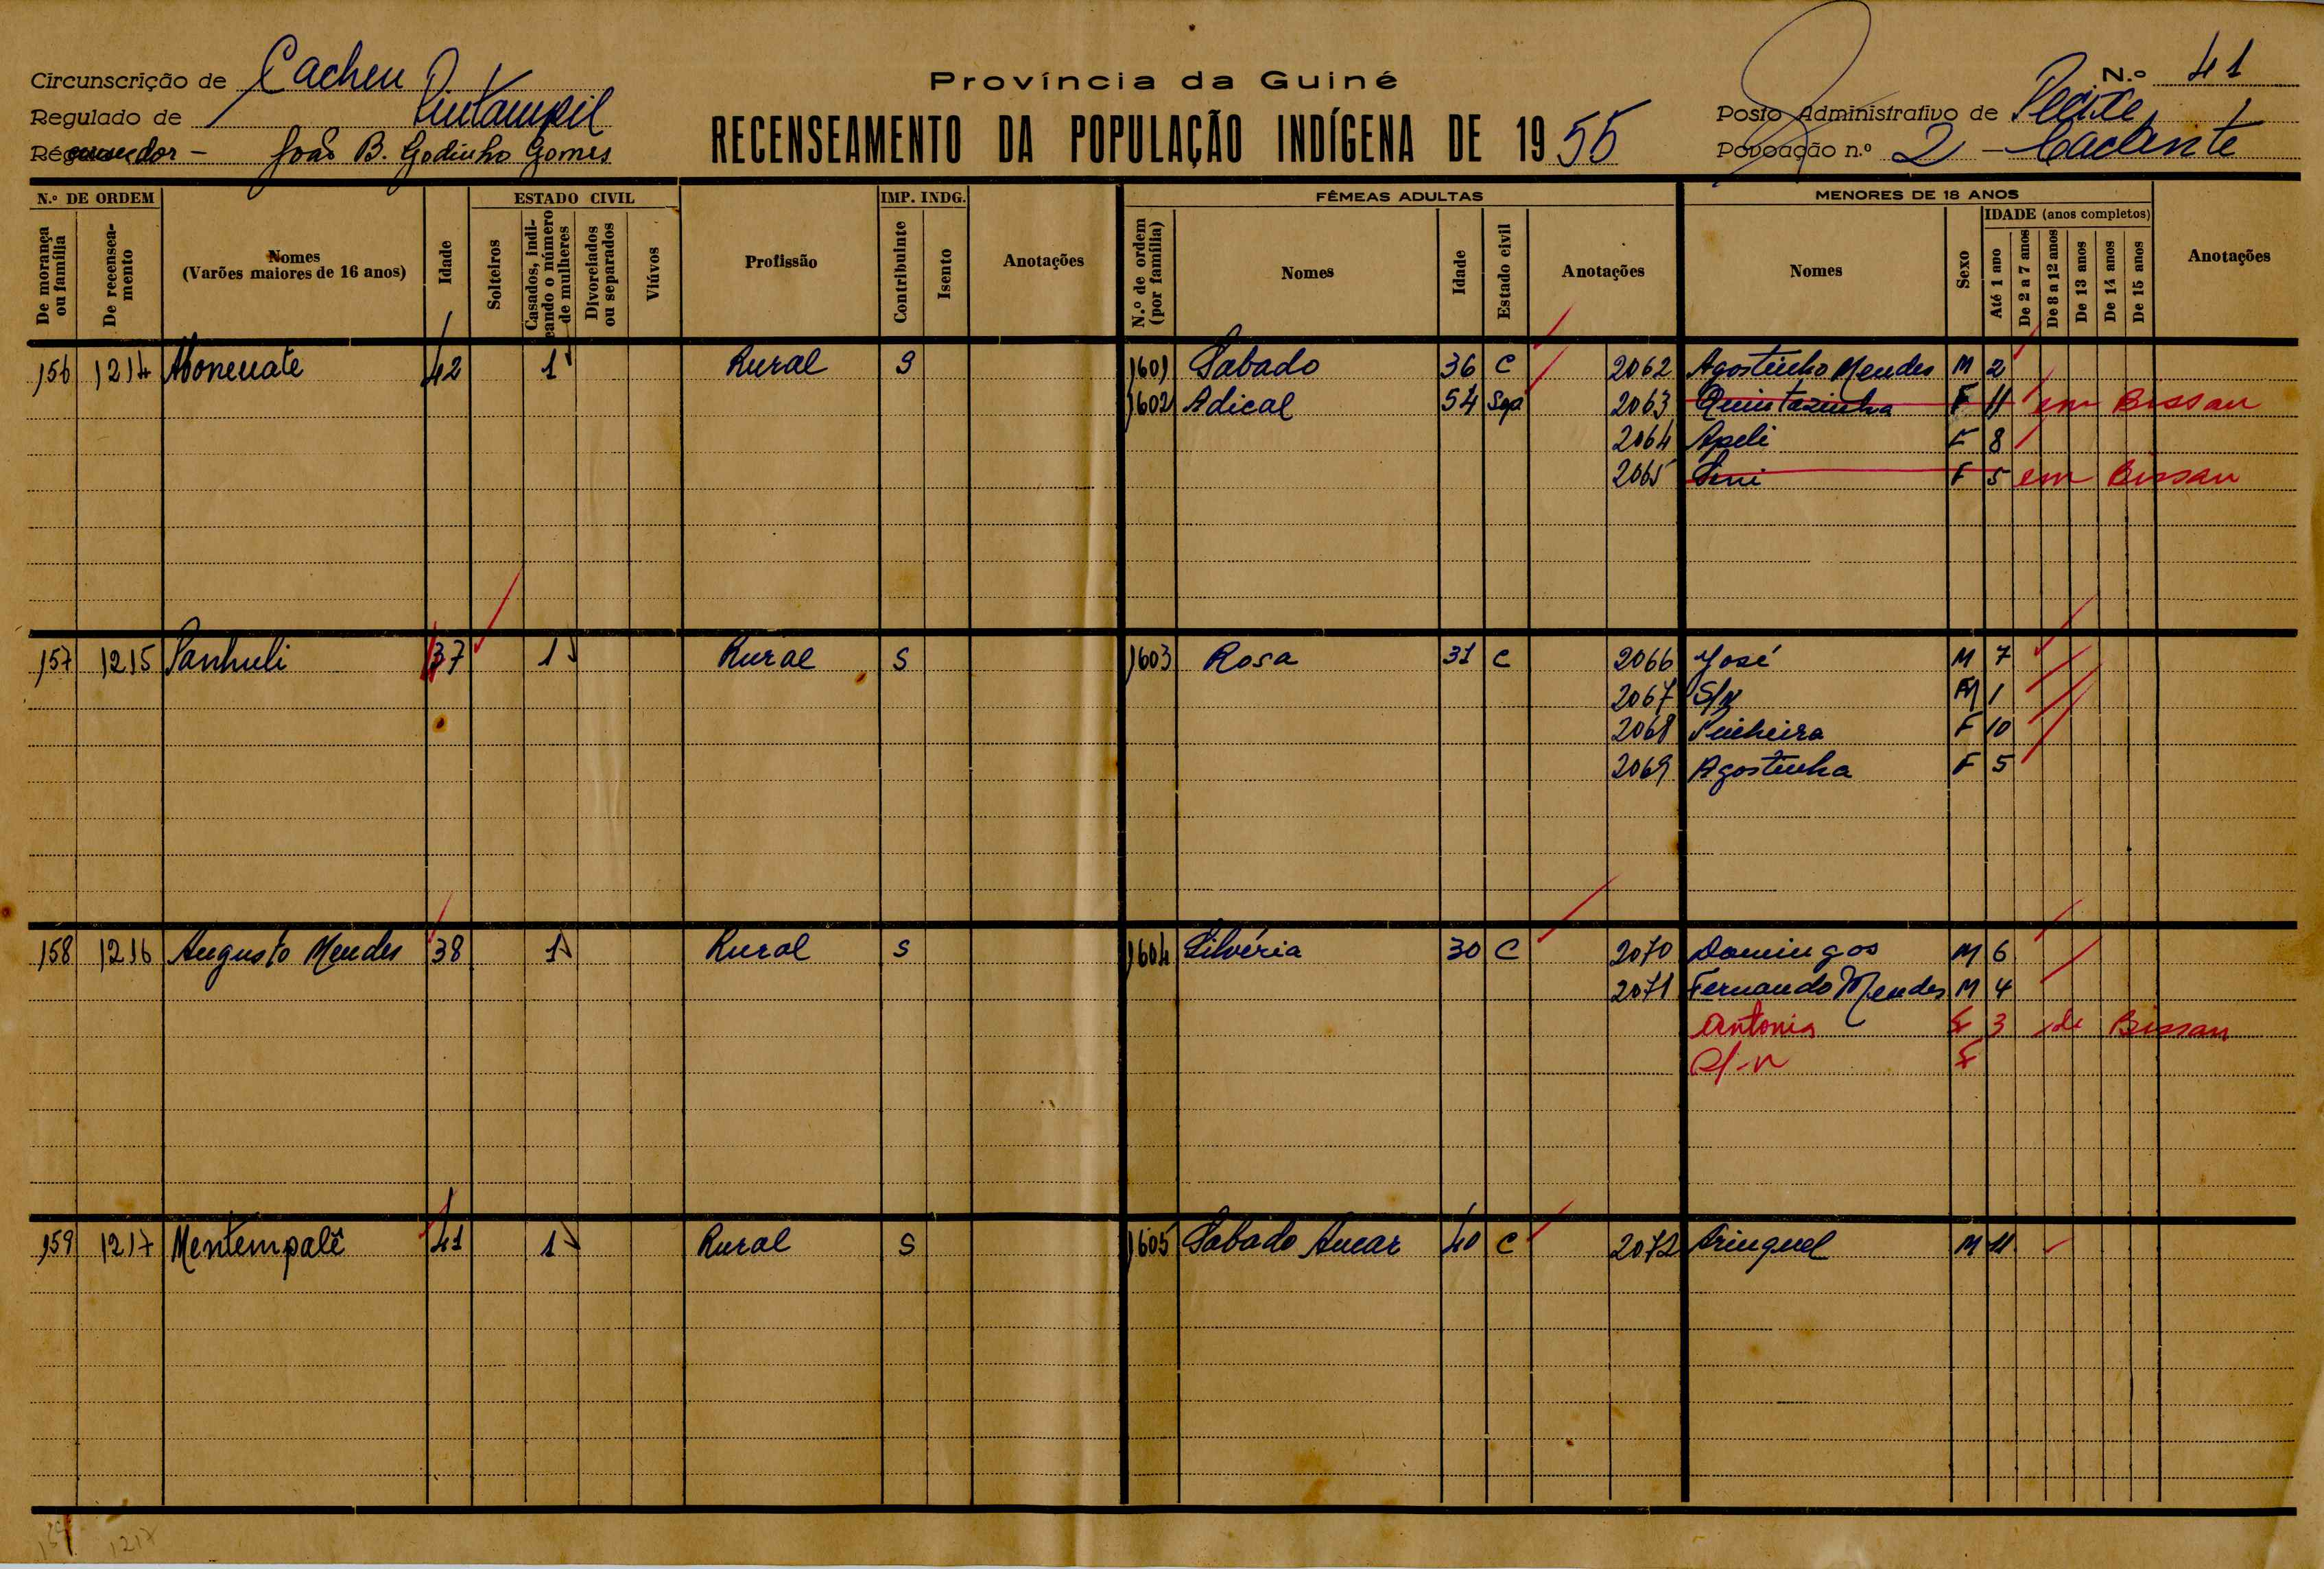 Província da Guiné
RECENSEAMENTO DA POPULAÇÃO INDÍGENA DE 1955
Circunscrição de Cacheu
Regulado de
Recenseador - João B. Godinho Gomes
N.º 41
Posto Administrativo de Pecixe
Povoação n.º 2 -
N.º DE ORDEM
De morança ou família
De recenseamento
Nomes
(Varões maiores de 16 anos)
Idade
ESTADO CIVIL
Solteiros
Casados, indicando o número de mulheres
Divorciados ou separados
Viúvos
Profissão
IMP. INDG.
Contribuinte
Isento
Anotações
FÊMEAS ADULTAS
N.º de ordem (por família)
Nomes
Idade
Estado civil
Anotações
MENORES DE 18 ANOS
Nomes
Sexo
IDADE (anos completos)
Até 1 ano
De 2 a 7 anos
De 8 a 12 anos
De 13 anos
De 14 anos
De 15 anos
Anotações
156 1214 42 1 Rural S 1601 Sabado 36 C 2062 Agostinho Mendes M 2
1602 Adical 54 Sep 2063 Quintazinha F 11 em Bissau
2064 Apeli F 8
2065 F 5 em Bissau
157 1215 Panhuli 37 1 Rural S 1603 Rosa 31 C 2066 José M 7
2067 S/N M 1
2068 F 10
2069 Agostinha F 5
158 1216 Augusto Mendes 38 1 Rural S 1604 Silvéria 30 C 2070 Domingos M 6
2071 Fernando Mendes M 4
Antonia F 3 de Bissau
S/-n F
159 1217 Mentempalê 41 1 Rural S 1605 Sabado 40 C 2072 M 11
159 1217